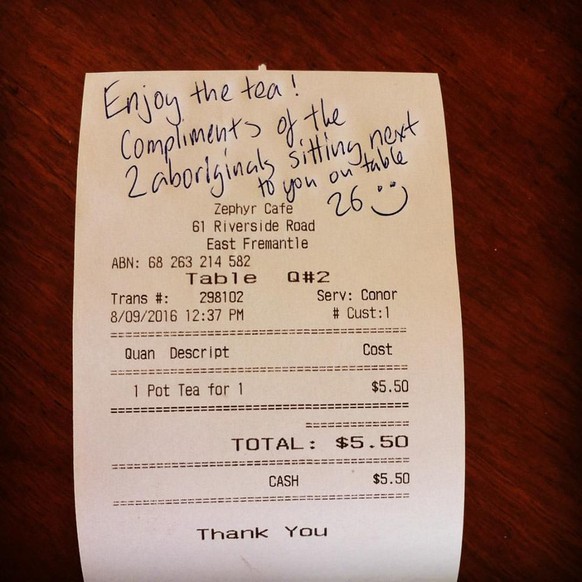 Enjoy the tea!
Compliments of the
2 aboriginals sitting next
to you on table
26
Zephyr Cafe
61 Riverside Road
East Fremantle
ABN: 68 263 214 582
Table Q#2
Trans #: 298102 Serv: Conor
8/09/2016 12:37 PM # Cust:1
Quan Descript Cost
1 Pot Tea for 1 $5.50
TOTAL: $5.50
CASH $5.50
Thank You